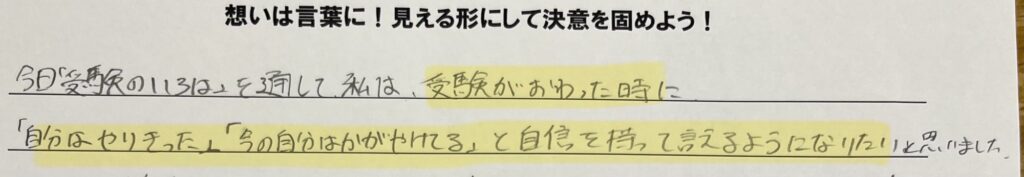 想いは言葉に！見える形にして決意を固めよう！
今日「受験のいろは」を通して、私は、受験がおわった時に
「自分はやりきった」「今の自分はかがやけてる」と自信を持って言えるようになりたいと思いました。